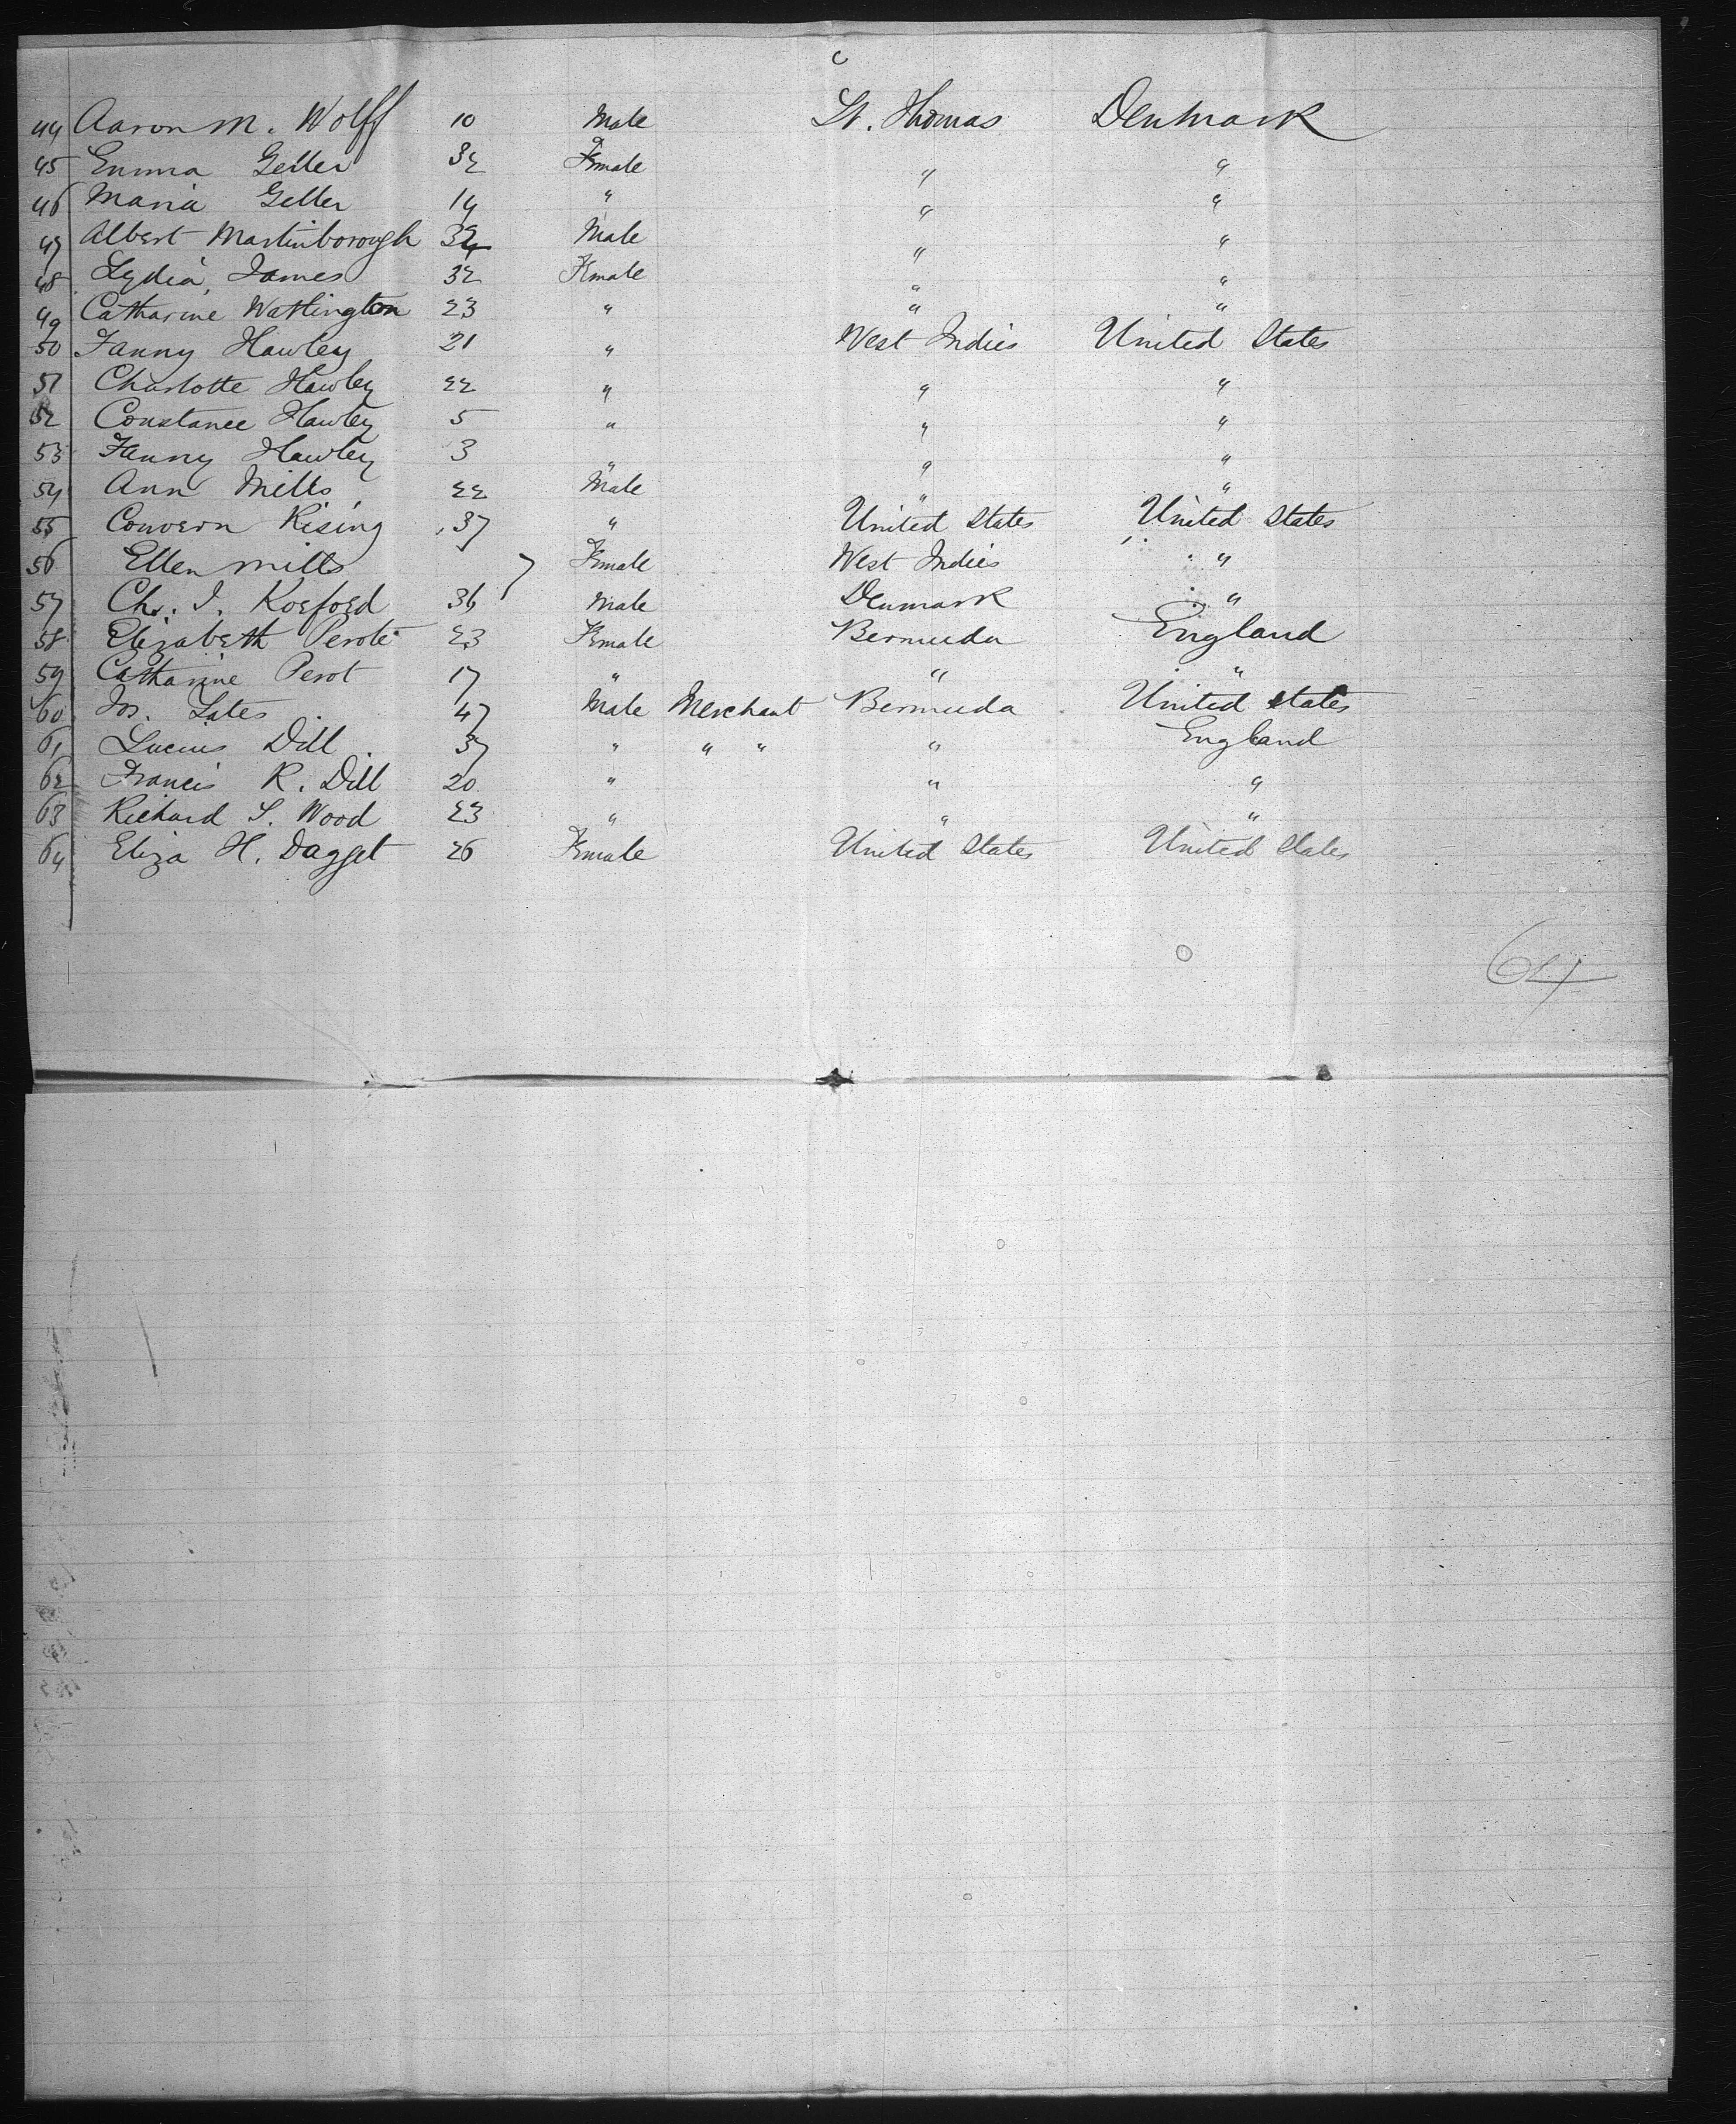 44 Aaron M. Wolff 10 Male St. Thomas Denmark
45 Emma Geller 32 Female " "
46 Maria Geller 14 " " "
47 Albert Martinborough 32 Male " "
48 Lydia James 32 Female " "
49 Catharine Watlington 23 " " "
50 Fanny Hawley 21 " West Indies United States
51 Charlotte Hawley 22 " " "
52 Constance Hawley 5 " " "
53 Fanny Hawley 3 " " "
54 Ann Mills 22 Male " "
55 Convern Rising 37 " United States United States
56 Ellen Mills 7 Female West Indies "
57 Ch. J. Korford 36 Male Denmark "
58 Elizabeth Perote 23 Female Bermuda England
59 Catharine Perot 17 " " "
60 Jos. 47 Male Merchant Bermuda United States
61 Lucius Dill 37 " " " " England
62 Francis R. Dill 20 " " "
63 Richard S. Wood 23 " " "
64 Eliza H. Dagget 26 Female United States United States
64